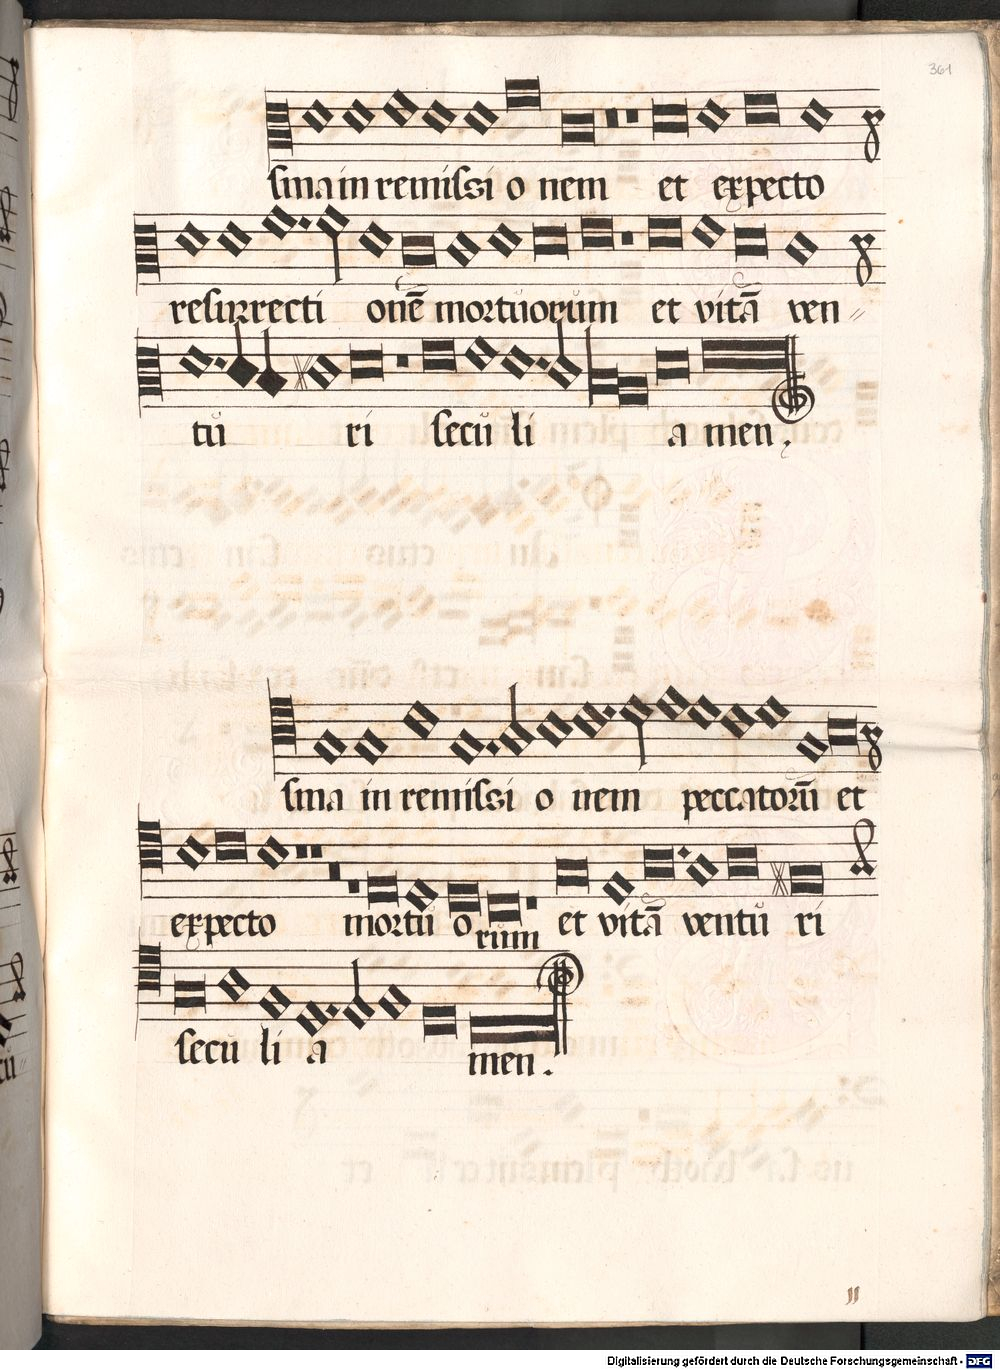 361
sma in remissi o nem et expecto
resurrecti onē mortuorum et vitā ven〃
tŭ ri secŭ li a men.
sma in remissi o nem peccatorū et
expecto mortŭ o rŭm et vitā ventŭ ri
secŭ li a men.
Digitalisierung gefördert durch die Deutsche Forschungsgemeinschaft - DFG